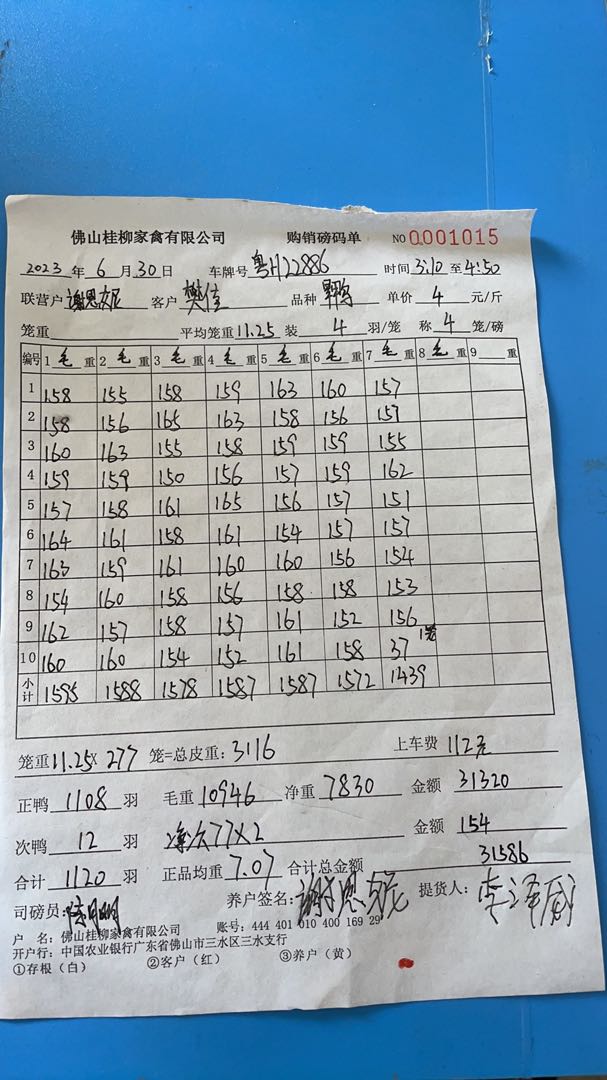 佛山桂柳家禽有限公司 购销磅码单 NO 0001015
2023 年 6 月 30 日 车牌号 粤H22886 时间 3:10 至 4:50
联营户 谢恩妮 客户 樊佳 品种 单价 4 元/斤
笼重 平均笼重 11.25 装 4 羽/笼 称 4 笼/磅
编号 1 毛 重 2 毛 重 3 毛 重 4 毛 重 5 毛 重 6 毛 重 7 毛 重 8 毛 重 9 重
1 158 155 158 159 163 160 157
2 158 156 165 163 158 156 157
3 160 163 155 158 159 159 155
4 159 159 150 156 157 159 162
5 157 158 161 165 156 157 151
6 164 161 158 161 154 157 157
7 163 159 161 160 160 156 154
8 154 160 158 156 158 158 153
9 162 157 158 157 161 152 156
10 160 160 154 152 161 158 37
小计 1595 1588 1578 1587 1587 1572 1439
笼重 11.25 X 277 笼=总皮重: 3116 上车费 112元
正鸭 1108 羽 毛重 10946 净重 7830 金额 31320
次鸭 12 羽 77X2 金额 154
合计 1120 羽 正品均重 7.07 合计总金额 31586
司磅员: 养户签名: 谢恩妮 提货人:
户 名: 佛山桂柳家禽有限公司 账号: 444 401 010 400 169 29
开户行: 中国农业银行广东省佛山市三水区三水支行
①存根(白) ②客户(红) ③养户(黄)